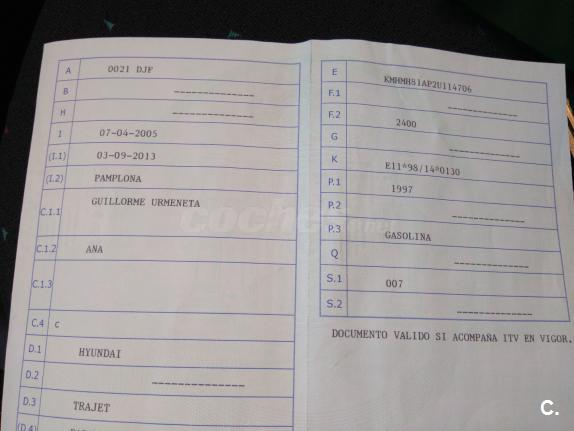 A 0021 DJF
B --------------
H --------------
I 07-04-2005
(I.1) 03-09-2013
(I.2) PAMPLONA
C.1.1 GUILLORME URMENETA
C.1.2 ANA
C.1.3
C.4 c
D.1 HYUNDAI
D.2 ----------------
D.3 TRAJET
(D.4)
E KMHMH81AP2U114706
F.1 --------------
F.2 2400
G --------------
K E11*98/14*0130
P.1 1997
P.2 --------------
P.3 GASOLINA
Q --------------
S.1 007
S.2 --------------
DOCUMENTO VALIDO SI ACOMPAÑA ITV EN VIGOR.
coches.net
C.